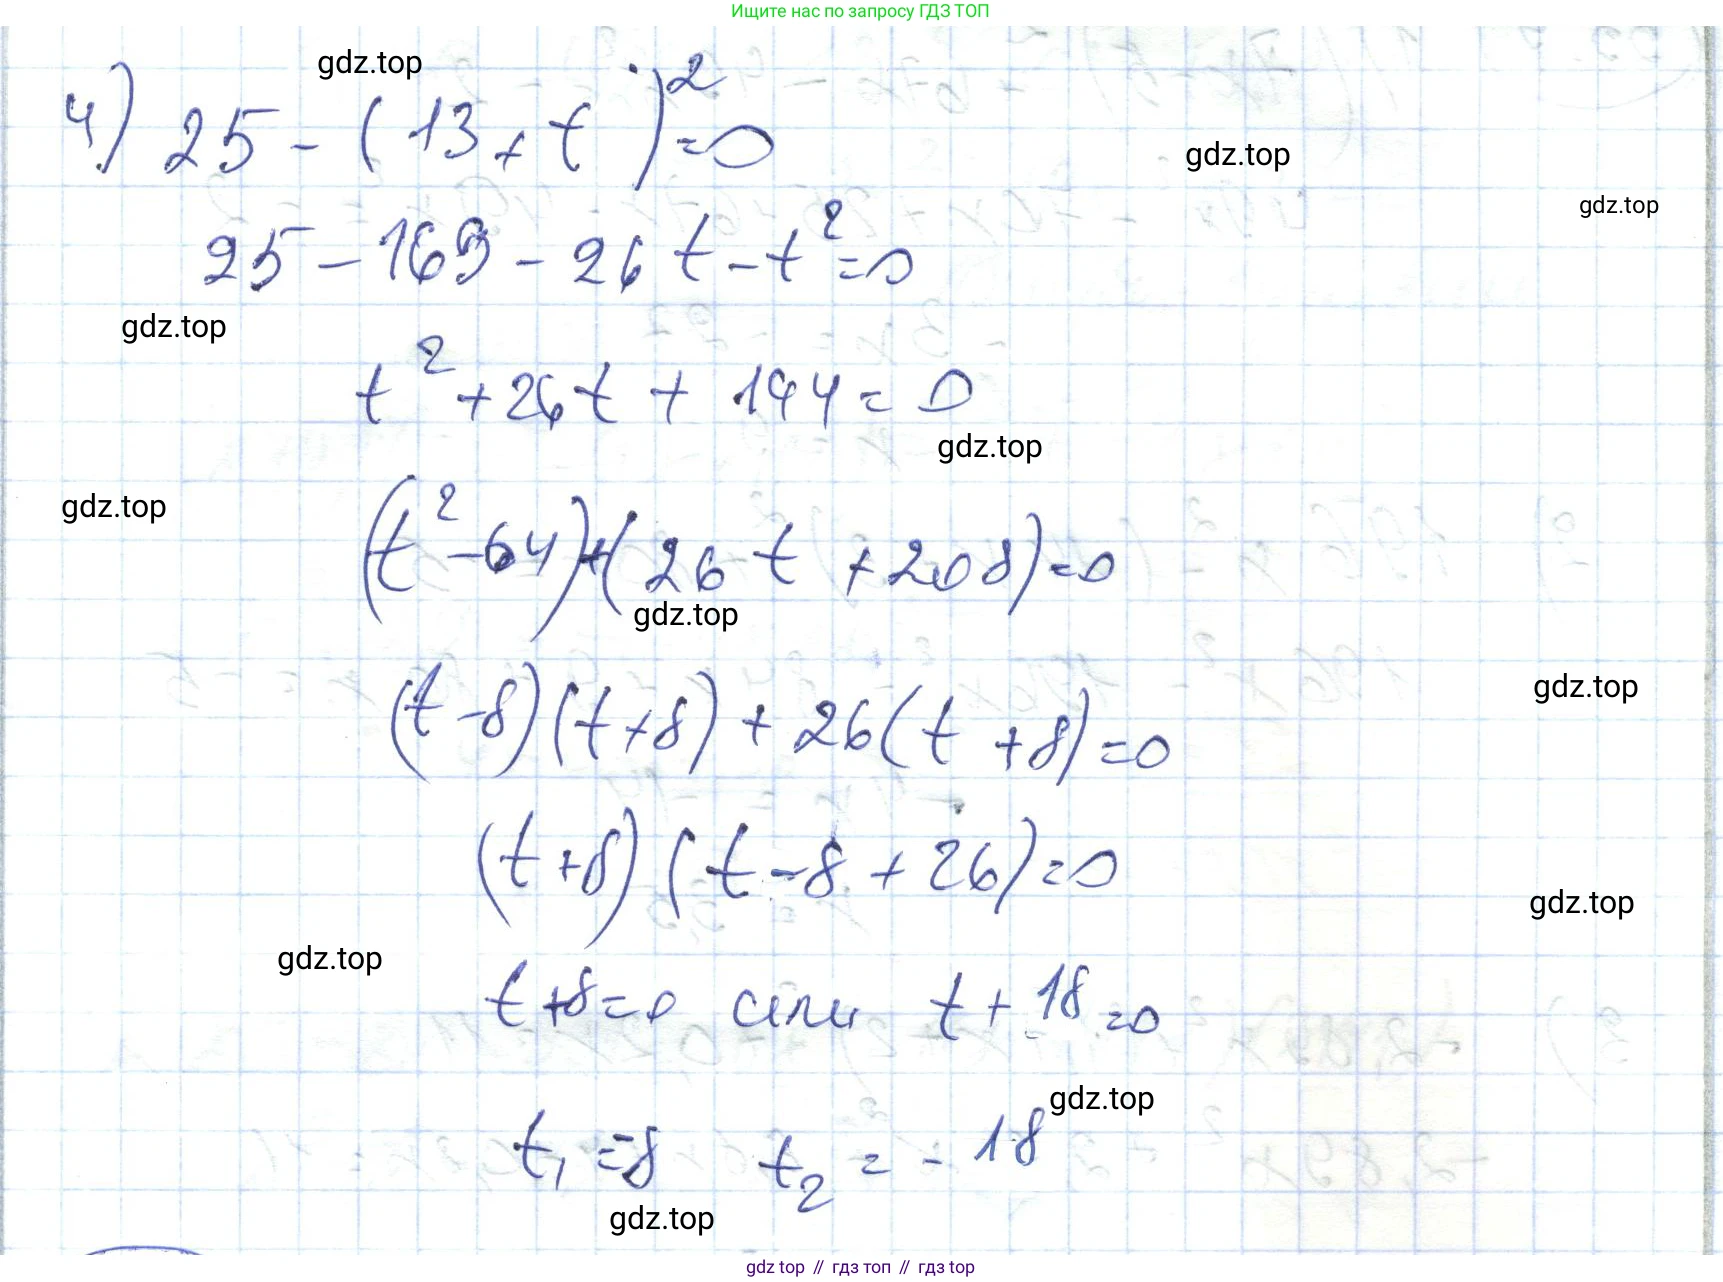 Ищите нас по запросу ГДЗ ТОП
gdz.top
4) 25 - (13 + t)² = 0
gdz.top
gdz.top
25 - 169 - 26t - t² = 0
gdz.top
t² + 26t + 144 = 0
gdz.top
gdz.top
(t² - 64) + (26t + 208) = 0
gdz.top
gdz.top
(t - 8)(t + 8) + 26(t + 8) = 0
(t + 8)(t - 8 + 26) = 0
gdz.top
gdz.top
t + 8 = 0 или t + 18 = 0
gdz.top
t₁ = -8 t₂ = -18
gdz.top
gdz top // гдз топ // гдз top